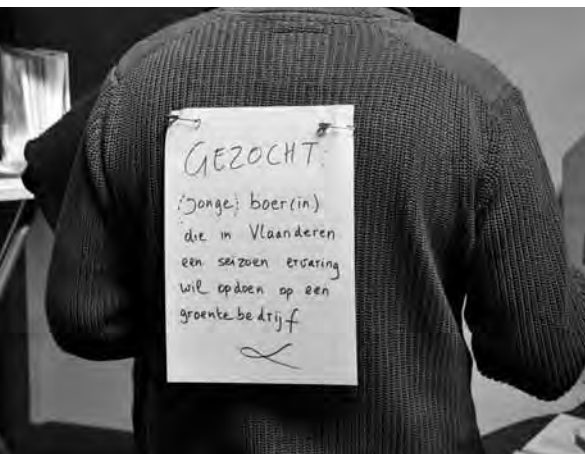 GEZOCHT:
(jonge) boer(in)
die in Vlaanderen
een seizoen ervaring
wil opdoen op een
groentebedrijf